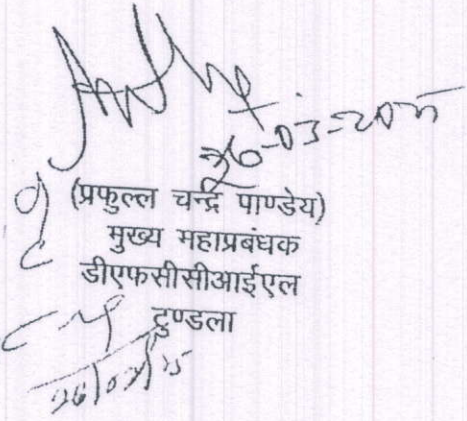 26-03-2025
(प्रफुल्ल चन्द्र पाण्डेय)
मुख्य महाप्रबंधक
डीएफसीसीआईएल
टुण्डला
26/03/25